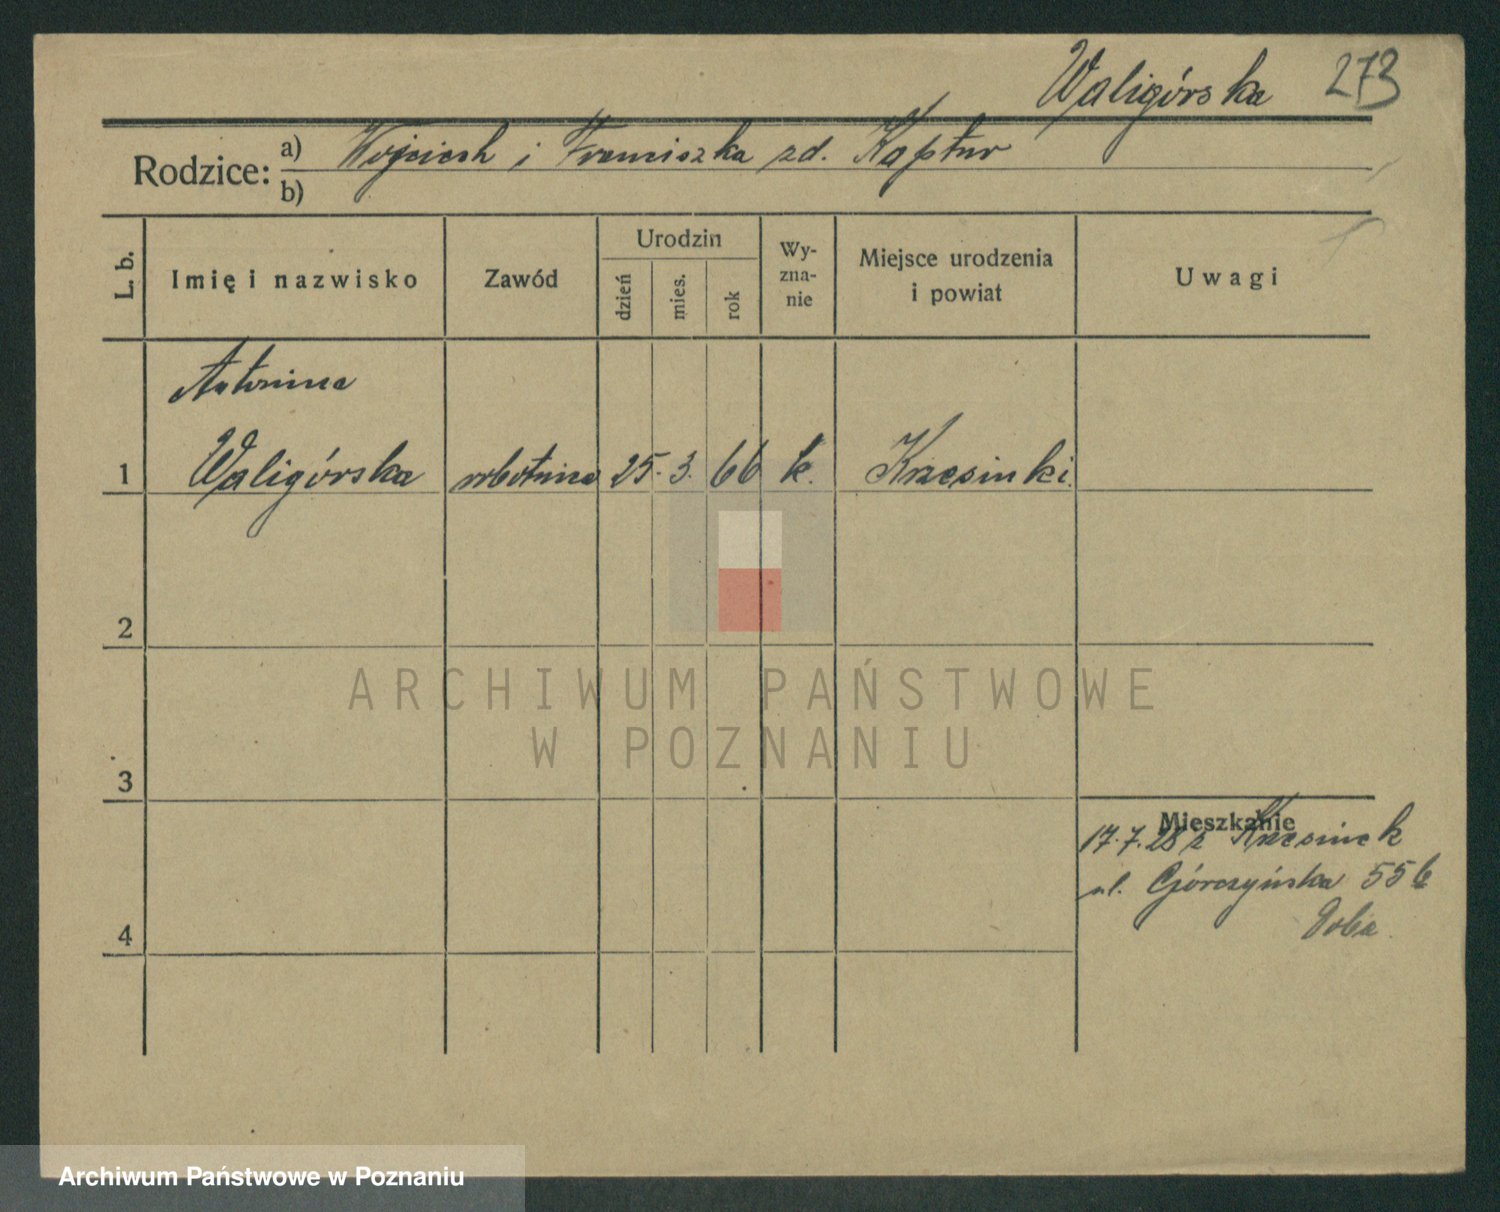 Waligórska 273
Rodzice: a) Wojciech i Franciszka zd. Kaptur
b)
L. b. Imię i nazwisko Zawód Urodzin dzień mies. rok Wy-zna-nie Miejsce urodzenia i powiat Uwagi
Antonina
1 Waligórska robotnica 25. 3. 66 k. Krzesinki.
2
ARCHIWUM PAŃSTWOWE
W POZNANIU
3
Mieszkanie
17.7.28 z Krzesinek
ul. Górczyńska 55b
4
Archiwum Państwowe w Poznaniu